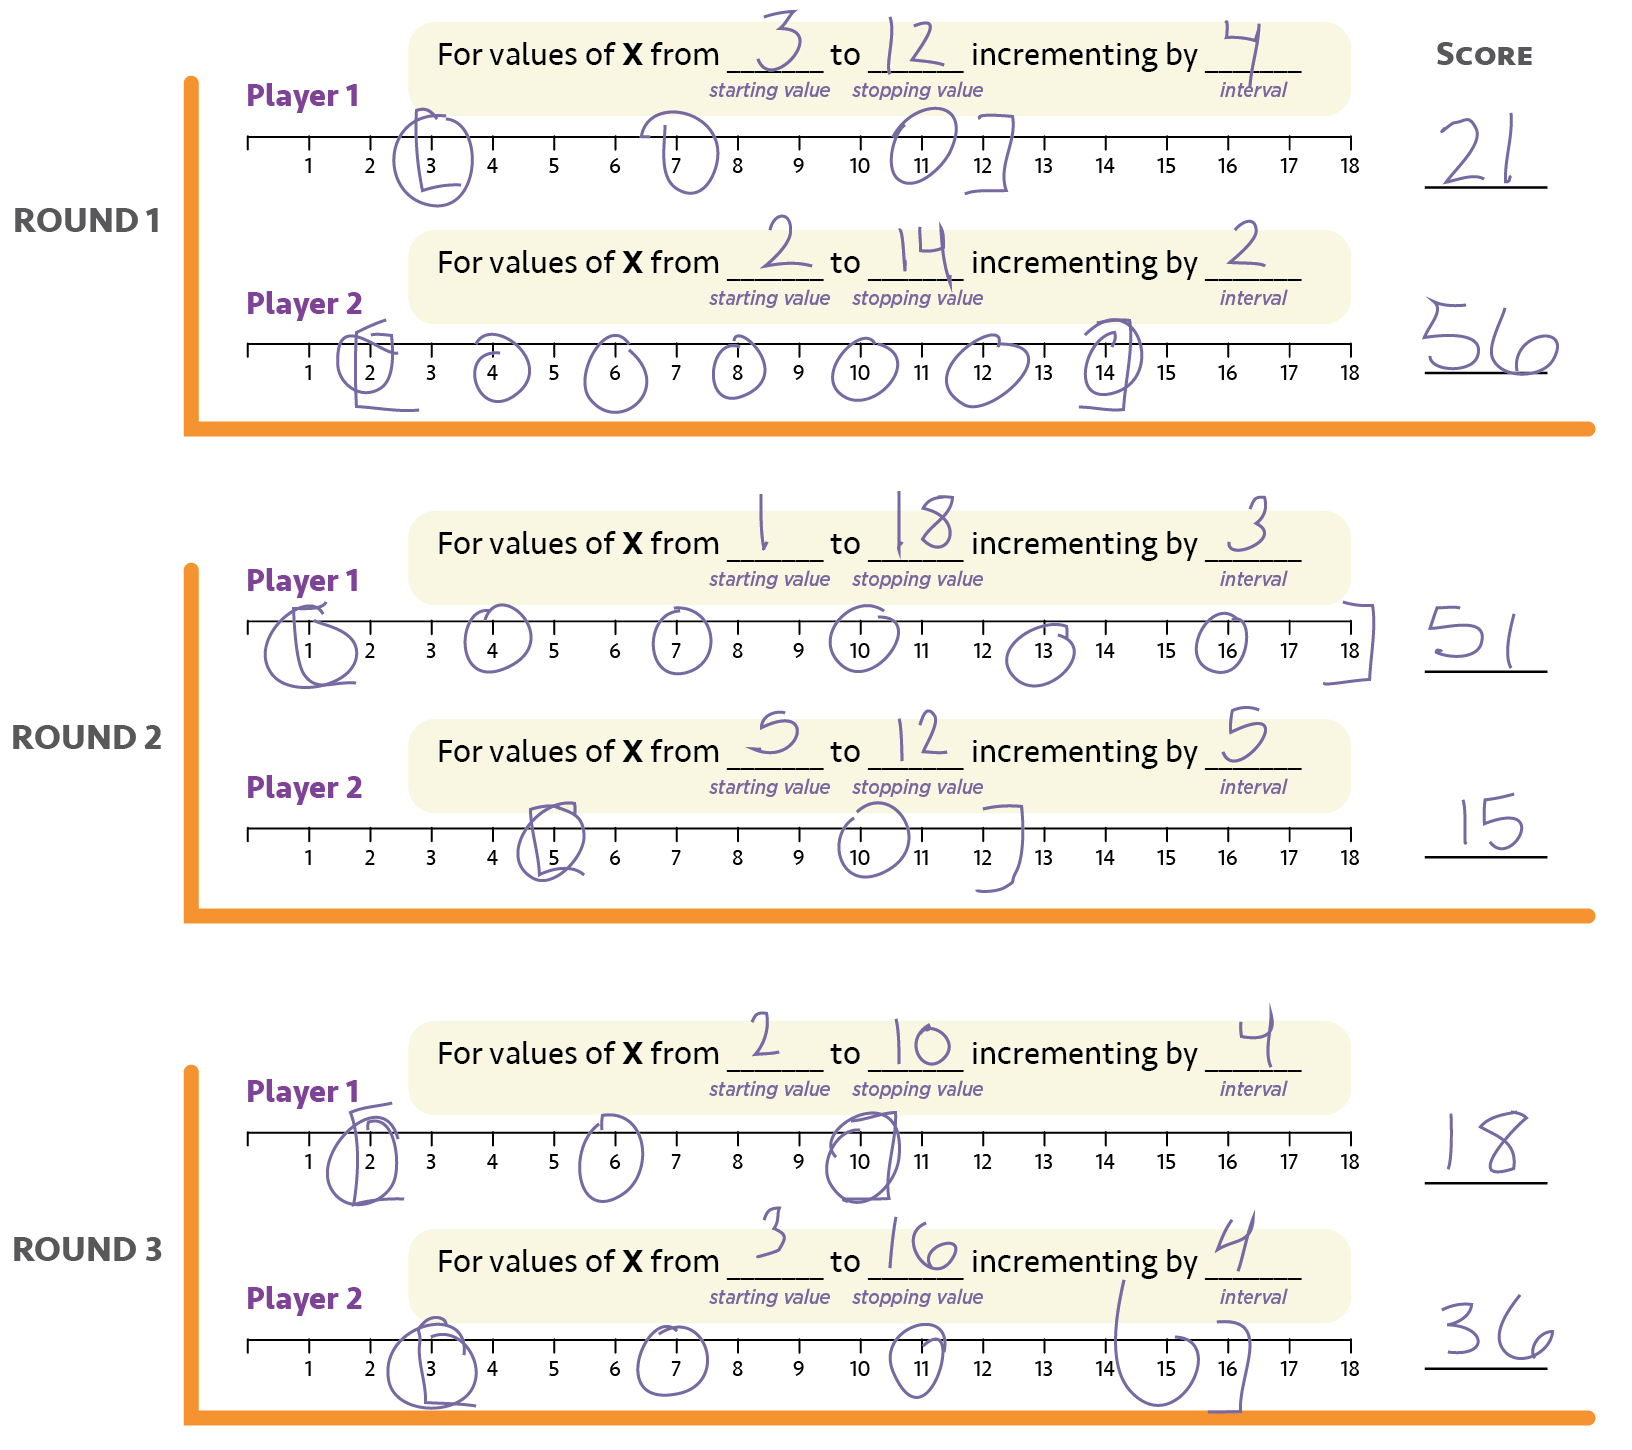 For values of X from 3 to 12 incrementing by 4
SCORE
starting value stopping value interval
Player 1
1 2 3 4 5 6 7 8 9 10 11 12 13 14 15 16 17 18
21
ROUND 1
For values of X from 2 to 14 incrementing by 2
starting value stopping value interval
Player 2
1 2 3 4 5 6 7 8 9 10 11 12 13 14 15 16 17 18
56
For values of X from 1 to 18 incrementing by 3
starting value stopping value interval
Player 1
1 2 3 4 5 6 7 8 9 10 11 12 13 14 15 16 17 18
51
ROUND 2
For values of X from 5 to 12 incrementing by 5
starting value stopping value interval
Player 2
1 2 3 4 5 6 7 8 9 10 11 12 13 14 15 16 17 18
15
For values of X from 2 to 10 incrementing by 4
starting value stopping value interval
Player 1
1 2 3 4 5 6 7 8 9 10 11 12 13 14 15 16 17 18
18
ROUND 3
For values of X from 3 to 16 incrementing by 4
starting value stopping value interval
Player 2
1 2 3 4 5 6 7 8 9 10 11 12 13 14 15 16 17 18
36